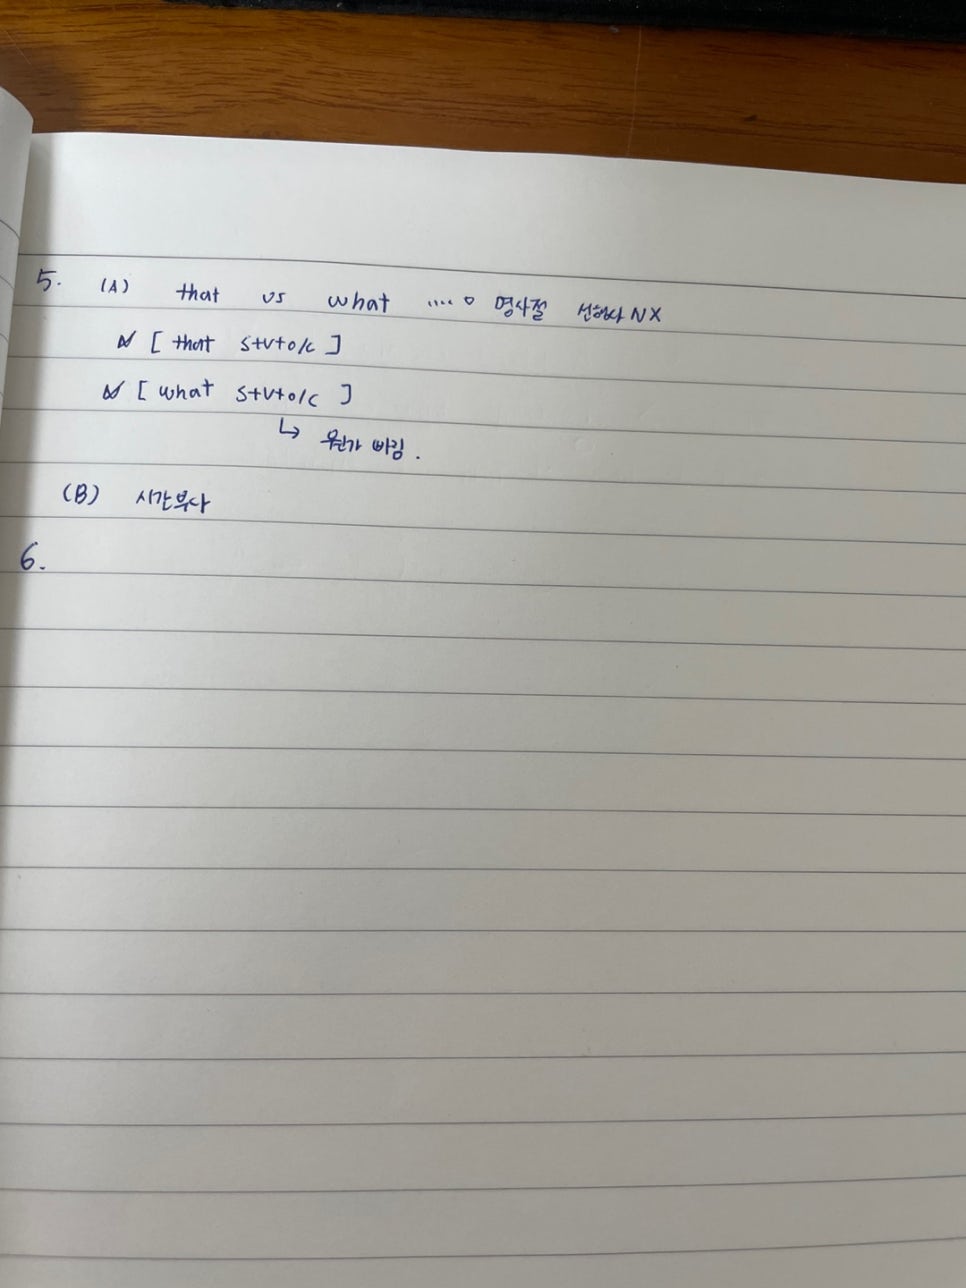 5. (A) that vs what .... 명사절 선행사 NX
[ that S+V+O/C ]
[ what S+V+O/C ]
↳ 뭔가 빠짐.
(B) 시간부사
6.